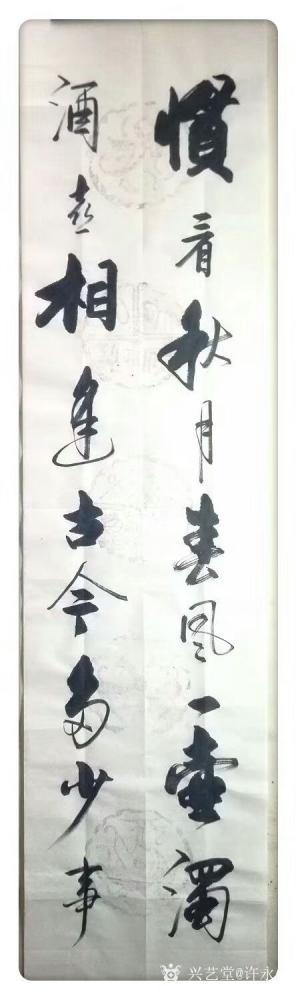 慣看秋月春风一壶濁
酒喜相逢古今多少事
兴艺堂@许永